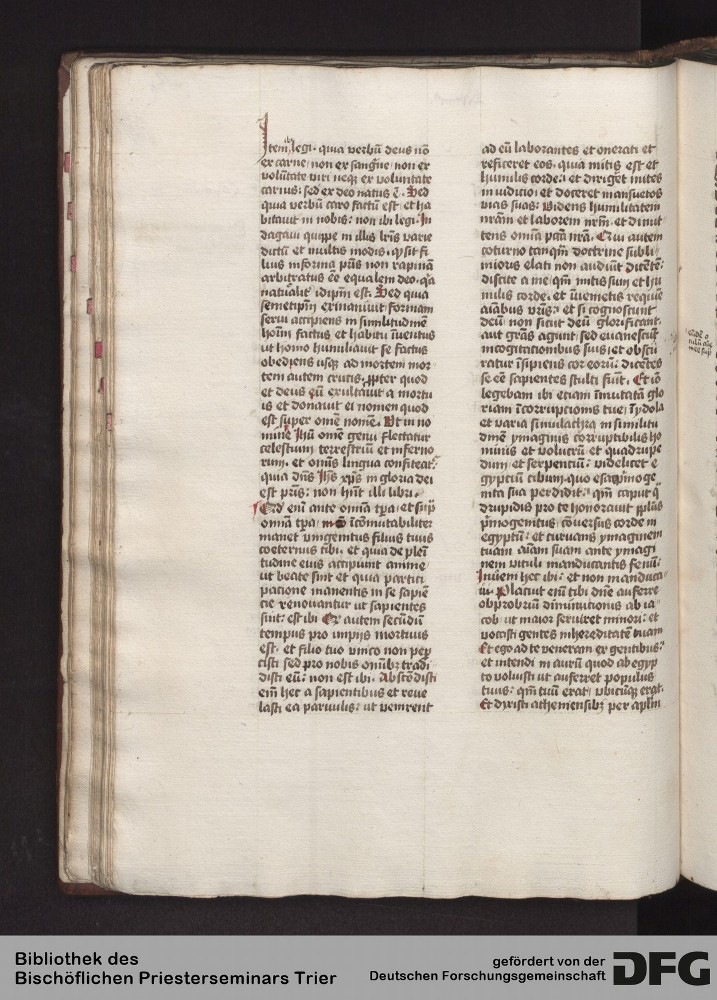 Item ibi legi· quia verbū deus nō
ex carne· non ex sanguīe· non ex
volūtate viri neq; ex voluntate
carnis: sed ex deo natus ē· Sed
quia verbū caro factū est· et ha
bitauit in nobis: non ibi legi· In
dagaui quippe in illis lr̄is varie
dictū et multis modis· qp sit fi
lius in forma pr̄is non rapinā
arbitratus ēe equalem deo· q̄a
naturalit̓ idipm̄ est· Sed quia
semetipm̄ exinaniuit formam
serui accipiens in similitudinē
hoīm factus et habitu īuentus
ut homo humiliauit se factus
obediens usq; ad mortem mor
tem autem crucis· ꝓpter quod
et deus eū exultauit a mortu
is et donauit ei nomen quod
est super omē nomē· Ut in no
mīne Ihū omē genu flectatur
celestium terrestriū et inferno
rum· et omīs lingua confiteat̓
quia dn̄s Ihs xp̄s in gloria dei
est pr̄is: non hn̄t illi libri·
Qd̄ enī ante omīa tp̄a· et sup̄
omīa tp̄a īcōmutabiliter
manet vnigenitus filius tuus
coeternus tibi· et quia de pleī
tudine eius accipiunt anime
ut beate sint et quia partici
patione manentis in se sapiē
cie renouantur ut sapientes
sint: est ibi· Qr̄ autem secūdū
tempus pro impijs mortuus
est· et filio tuo vnico non pep̄
cisti sed pro nobis omībꝫ tradi
disti eū: non est ibi· Abscōdisti
em̄ hec a sapientibus et reue
lasti ea paruulis: ut venirent
ad eū laborantes et onerati et
reficeret eos· quia mitis est et
humilis corde: et diriget mites
in iudicio: et doceret mansuetos
vias suas: Videns humilitatem
nr̄am et laborem nr̄m· et dimit
tens omīa pcc̄a nr̄a· Qui autem
coturno tanqm̄ doctrine subli
mioris elati non audiūt dicētē:
discite a me· qm̄ mitis sum et hu
milis corde· et īuenietis requiē
aīabus vr̄is: et si cognoscunt
deū non sicut deū glorificant·
aut grās agunt· sed euanescūt
in cogitationibus suis: et obscu
ratur īsipiens cor eorū: dicētes
se ēē sapientes stulti fiūt· Et iō
legebam ibi etiam īmutatā glo
riam īcorruptionis tue: ī ydola
et varia simulachra in similitu
dinē ymaginis corruptibilis ho
minis et volucrū et quadrupe
dum et serpentiū: videlicet e
gyptiū cibum· quo esau pīmoge
nita sua perdidit: qm̄ caput q̄
drupidis pro te honorauit pp̄lus
pīmogenitus· cōuersus corde in
egyptū: et curuans ymaginem
tuam· aīam suam ante ymagi
nem vituli manducantis fenū:
Inuēni hec ibi: et non manduca
ui· Placuit enī tibi dn̄e auferre
obprobriū diminutionis ab ia
cob· ut maior seruiret minori: et
vocasti gentes in hereditatē tuam
Et ego ad te veneram ex gentibus:
et intendi in aurū quod ab egyp
to voluisti ut auferret populus
tuus: qm̄ tuū erat: vbicūq; erat·
Et dixisti atheniensibꝫ per apl̄m
Bibliothek des
Bischöflichen Priesterseminars Trier
gefördert von der
Deutschen Forschungsgemeinschaft
DFG